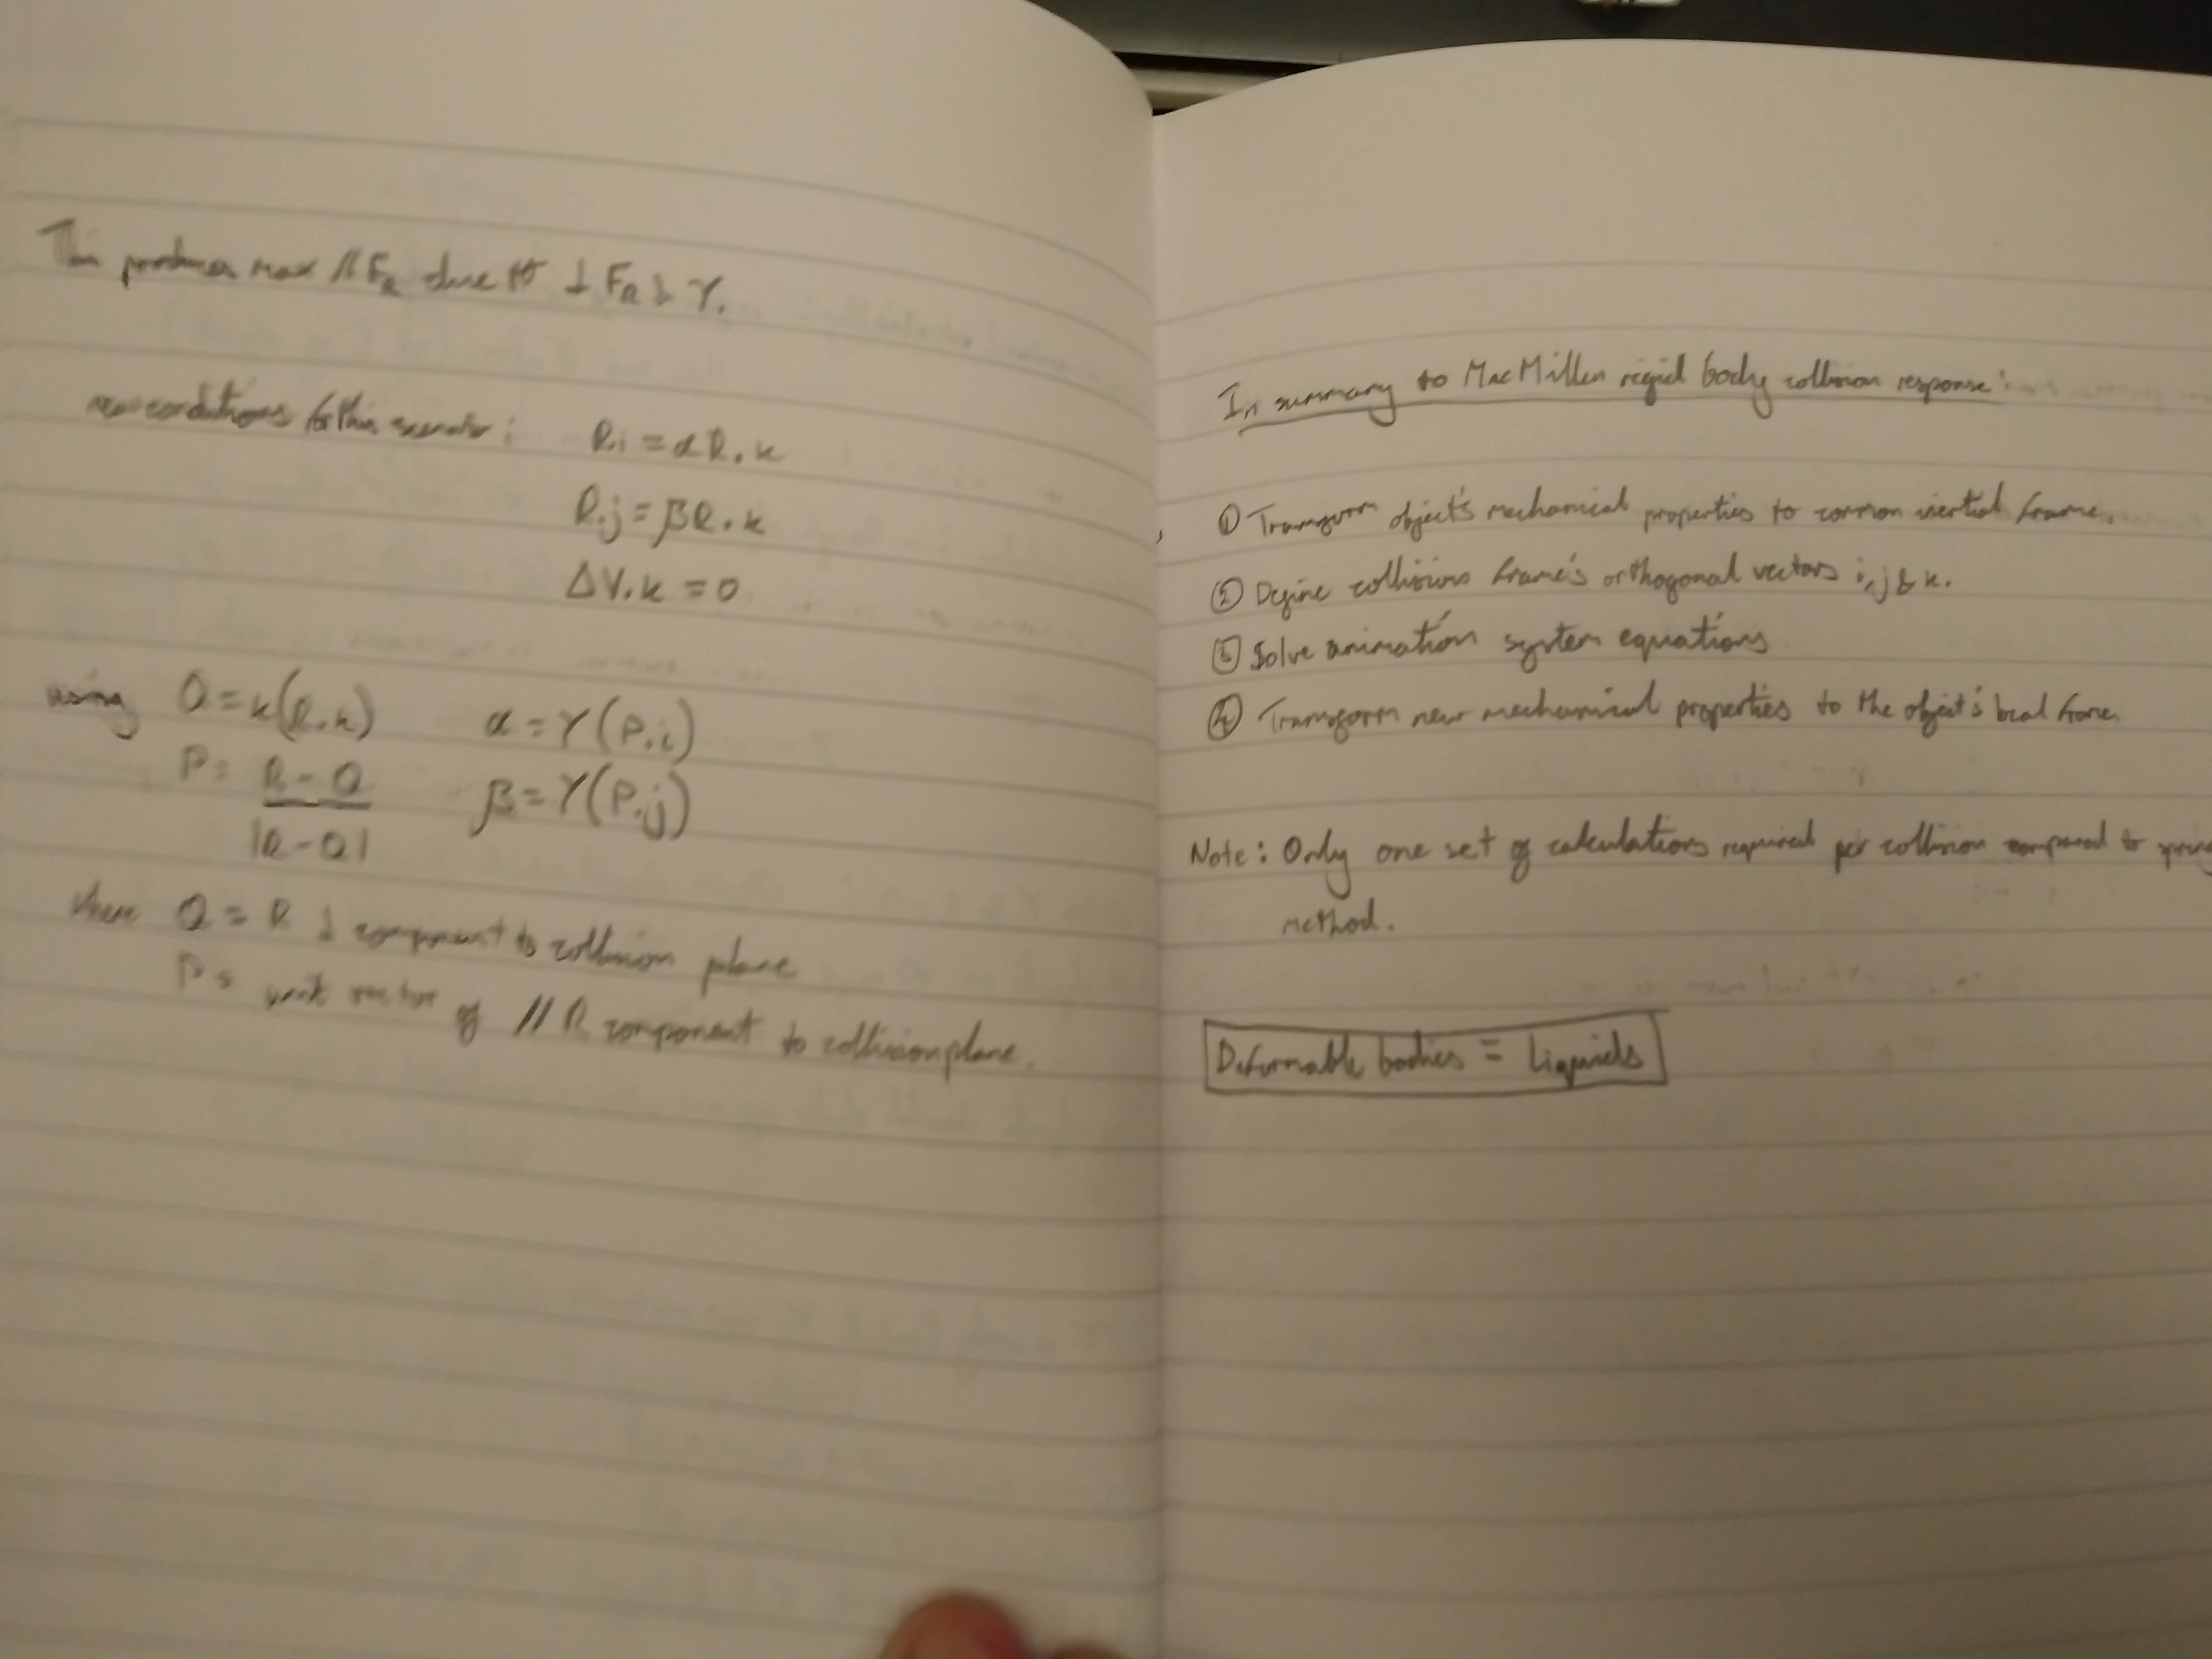 This produces max // F_R due to ⊥ F_R & γ.
new conditions for this scenario : R.i = αR.k
R.j = βR.k
ΔV.k = 0
using Q = k(R.k) α = γ(P.i)
P = R - Q β = γ(P.j)
|R - Q|
where Q = R ⊥ component to collision plane
P = unit vector of // R component to collision plane.
In summary to MacMillen rigid body collision response:
① Transform object's mechanical properties to common inertial frame.
② Define collisions frame's orthogonal vectors i, j & k.
③ Solve animation system equations
④ Transform new mechanical properties to the object's local frame.
Note: Only one set of calculations required per collision compared to
method.
Deformable bodies = Liquids